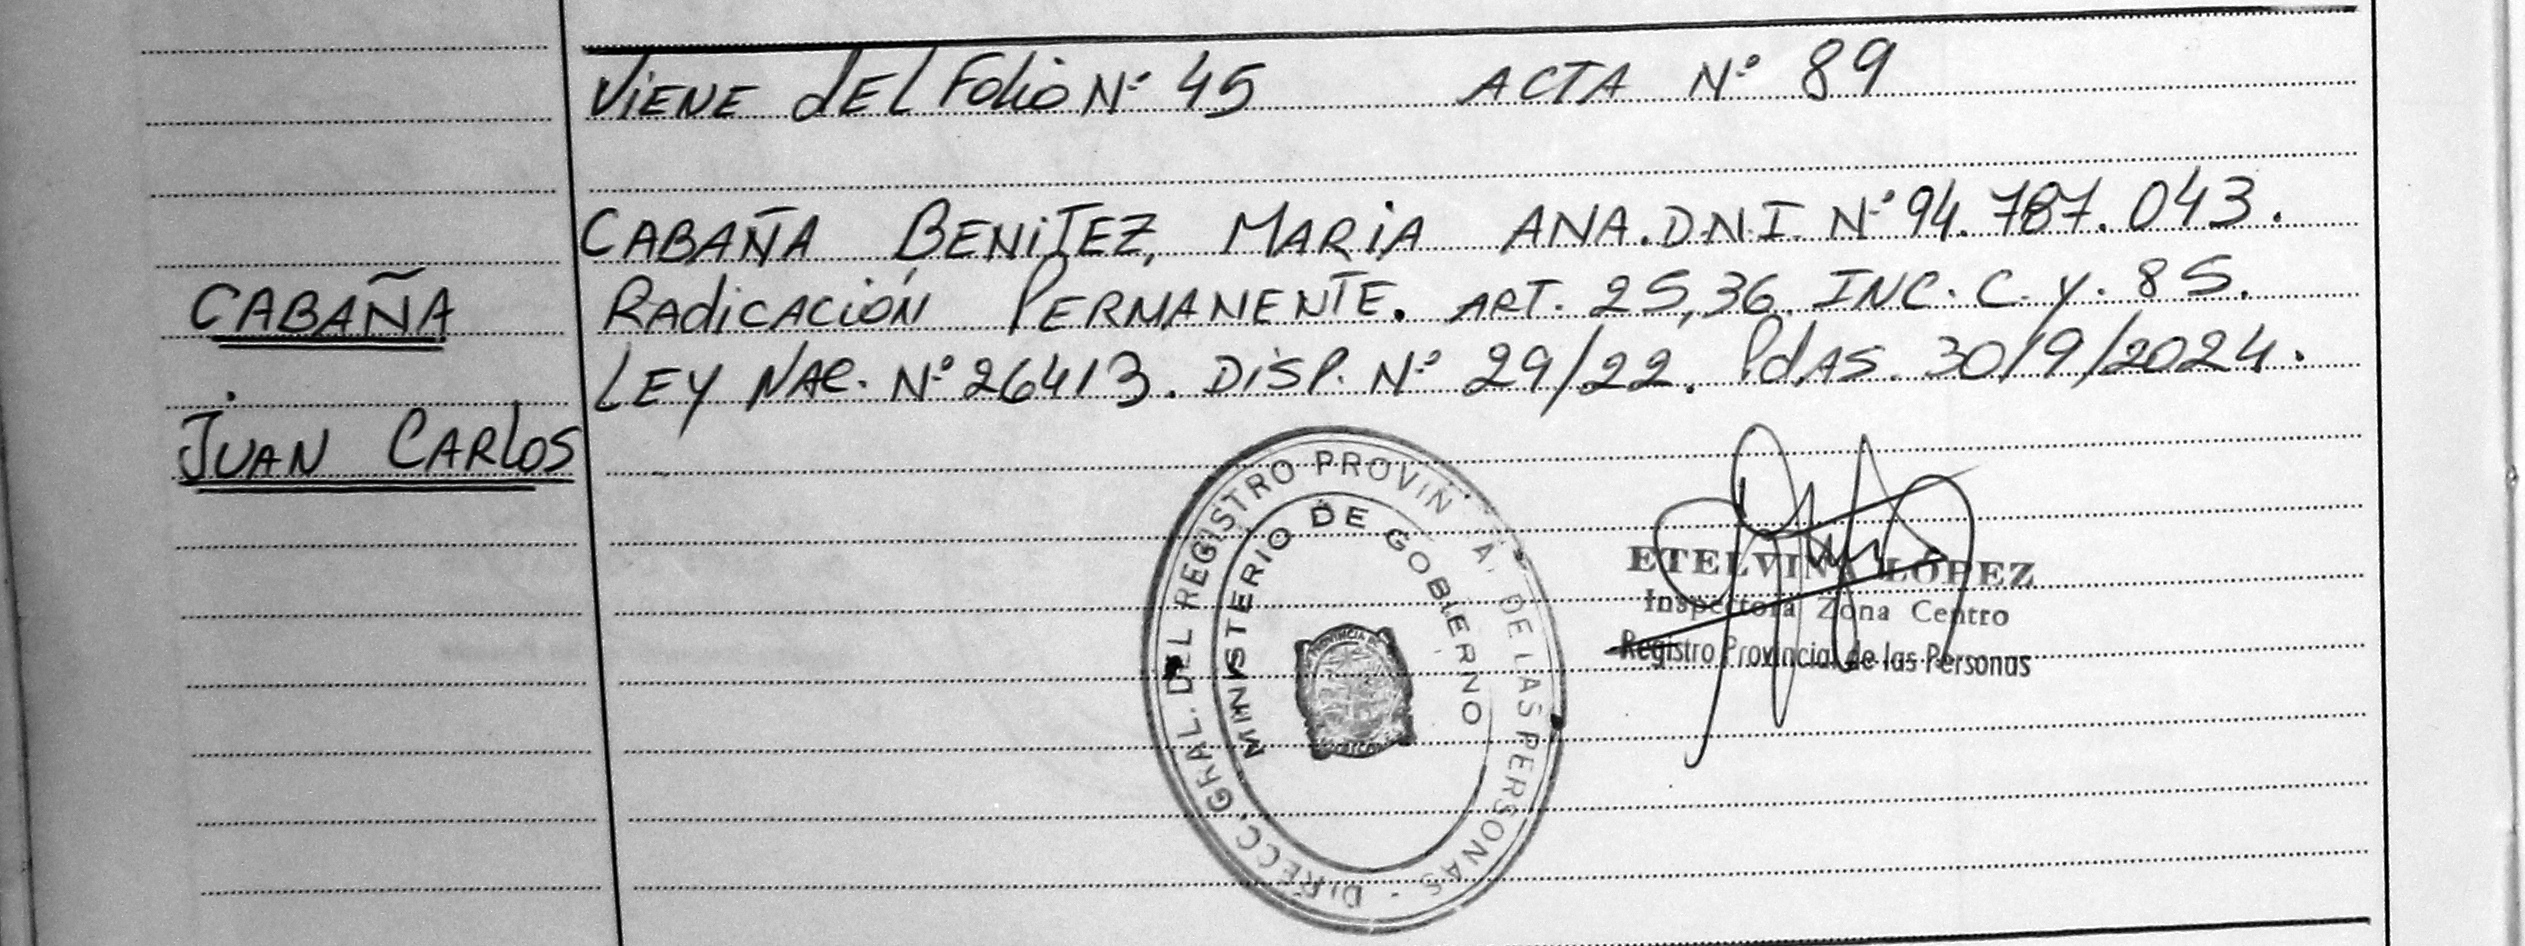 ViENE dEL Folio Nº 45 ACTA Nº 89
CABAÑA BENiTEZ, MARiA ANA. D.N.I. Nº 94.787.043.
CABAÑA
RAdiCACiÓN PERMANENTE. ART. 25,36, INC. C. y. 85.
LEY NAC. Nº 26413. DiSP. Nº 29/22. PdAS. 30/9/2024.
JUAN CARLOS
DIRECC. GRAL. DEL REGISTRO PROVIN A. DE LAS PERSONAS -
MINISTERIO DE GOBIERNO
ETELVINA LÓPEZ
Inspectora Zona Centro
Registro Provincial de las Personas